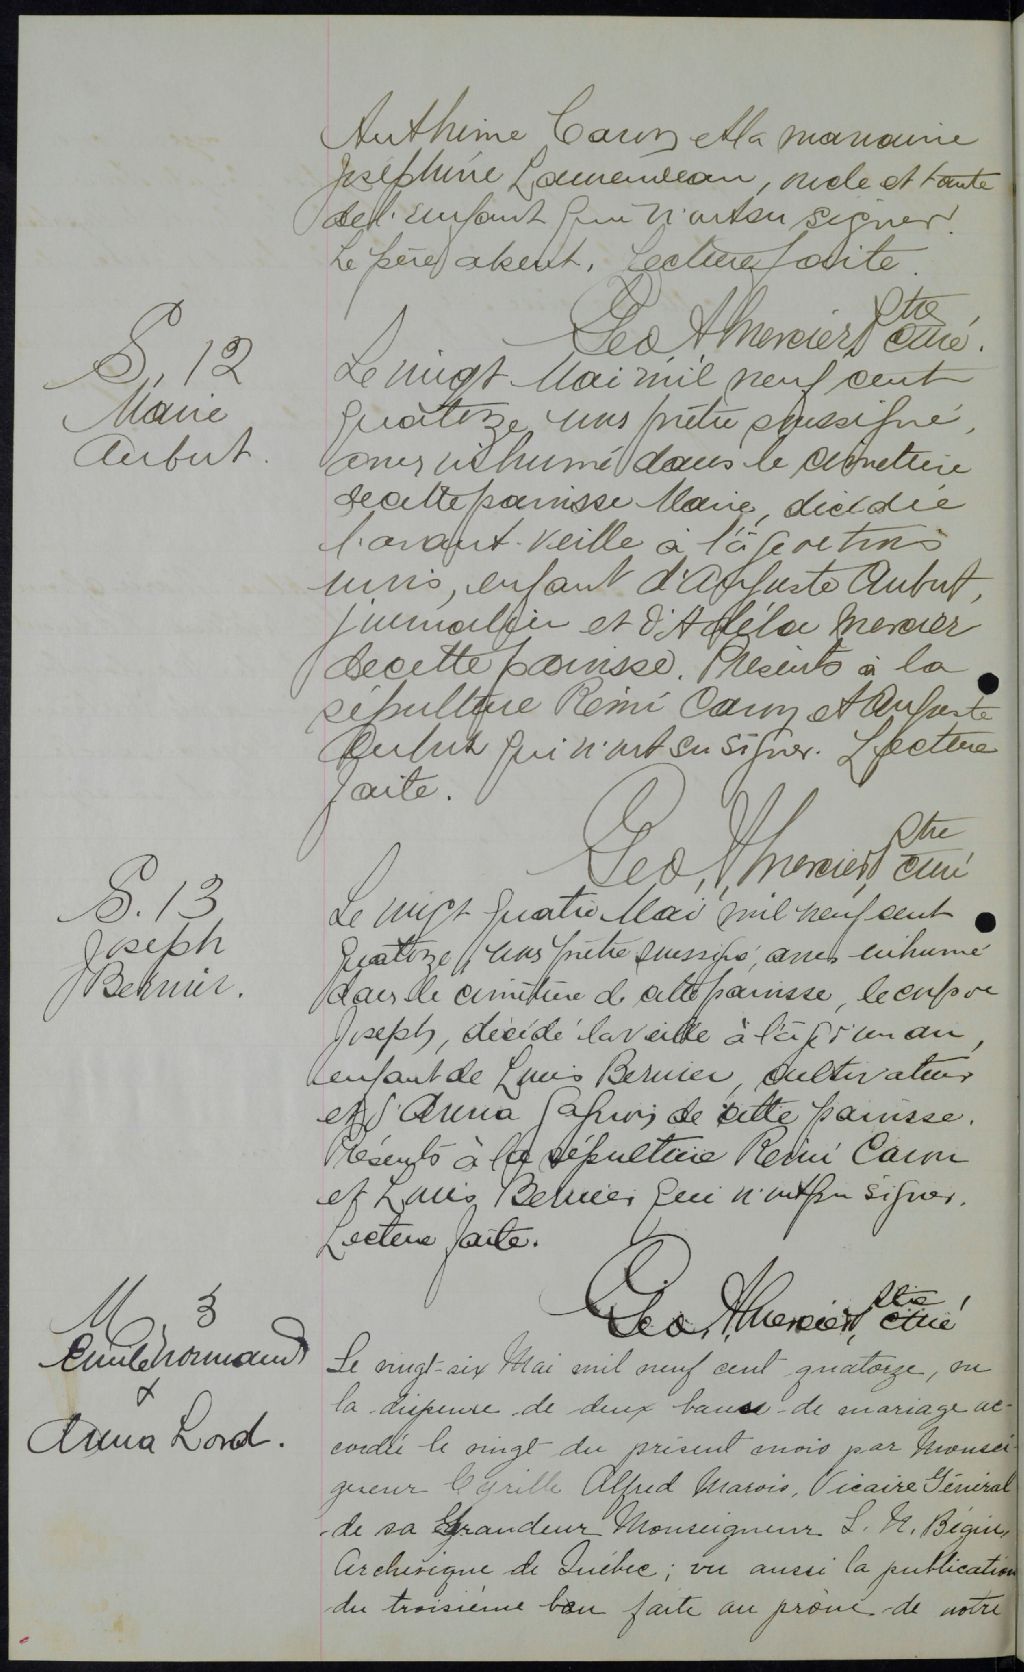 Anthime Caron et la marraine
Joséphine Lamendeau, oncle et tante
de l'enfant qui n'ont su signer.
Le père absent. Lecture faite.
Geo A Mercier Ptre curé.
S. 12
Marie
Aubut.
Le vingt Mai mil neuf cent
quatorze nous prêtre soussigné,
avons inhumé dans le cimetière
de cette paroisse Marie, décédée
l'avant-veille à l'âge de trois
mois, enfant d'Auguste Aubut,
journalier et d'Adéla Mercier
de cette paroisse. Présents à la
sépulture Rémi Caron et Auguste
Aubut qui n'ont su signer. Lecture
faite.
Geo. A. Mercier, Ptre curé
S. 13
Joseph
Bernier.
Le vingt quatre Mai mil neuf cent
quatorze, nous prêtre soussigné, avons inhumé
dans le cimetière de cette paroisse, le corps de
Joseph, décédé la veille à l'âge d'un an,
enfant de Louis Bernier, cultivateur
et d'Anna Gagnon de cette paroisse.
Présents à la sépulture Rémi Caron
et Louis Bernier qui n'ont pu signer.
Lecture faite.
Geo. A. Mercier, Ptre curé
M. 3
Emile Normand
&
Anna Lord.
Le vingt-six Mai mil neuf cent quatorze, vu
la dispense de deux bans de mariage ac-
cordée le vingt du présent mois par Monsei-
gneur Cyrille Alfred Marois, Vicaire Général
de sa Grandeur Monseigneur L. N. Bégin,
Archevêque de Québec; vu aussi la publication
du troisième ban faite au prône de notre